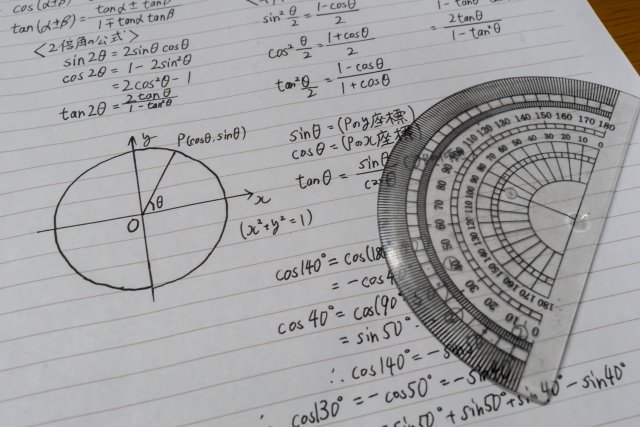 cos(α±β)
tan(α±β) = tanα ± tanβ / 1∓tanα tanβ
<2倍角の公式>
sin2θ = 2sinθ cosθ
cos2θ = 1 - 2sin²θ
= 2cos²θ - 1
tan2θ = 2tanθ / 1-tan²θ
sin² θ/2 = 1-cosθ / 2
cos² θ/2 = 1+cosθ / 2
tan² θ/2 = 1-cosθ / 1+cosθ
= 2tanθ / 1-tan²θ
y
P(cosθ, sinθ)
θ
x
O
(x²+y²=1)
sinθ = (Pのy座標)
cosθ = (Pのx座標
tanθ = sinθ / cosθ
cos140° = cos(180
= -cos4
cos40° = cos(90°
= sin50°
∴ cos140° = -sin
cos130° = -cos50° = -sin
sin50° + sin50° + sin40° - sin40°
110 120 130 140 150 160 170 180
60 50 40 30 20 10 0
80 70 60 50 40 30 20 10 0
150 160 170 180